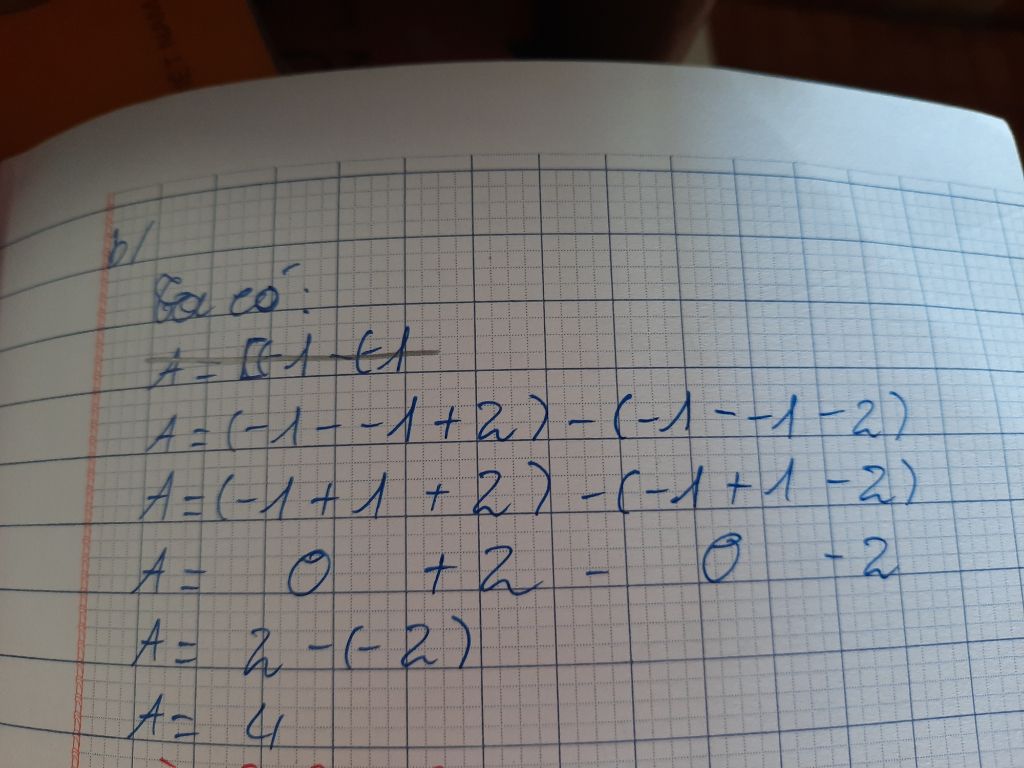 b/
Ta có:
A = [(-1 - (-1
A = (-1 - -1 + 2) - (-1 - -1 - 2)
A = (-1 + 1 + 2) - (-1 + 1 - 2)
A = 0 + 2 - 0 - 2
A = 2 - (-2)
A = 4